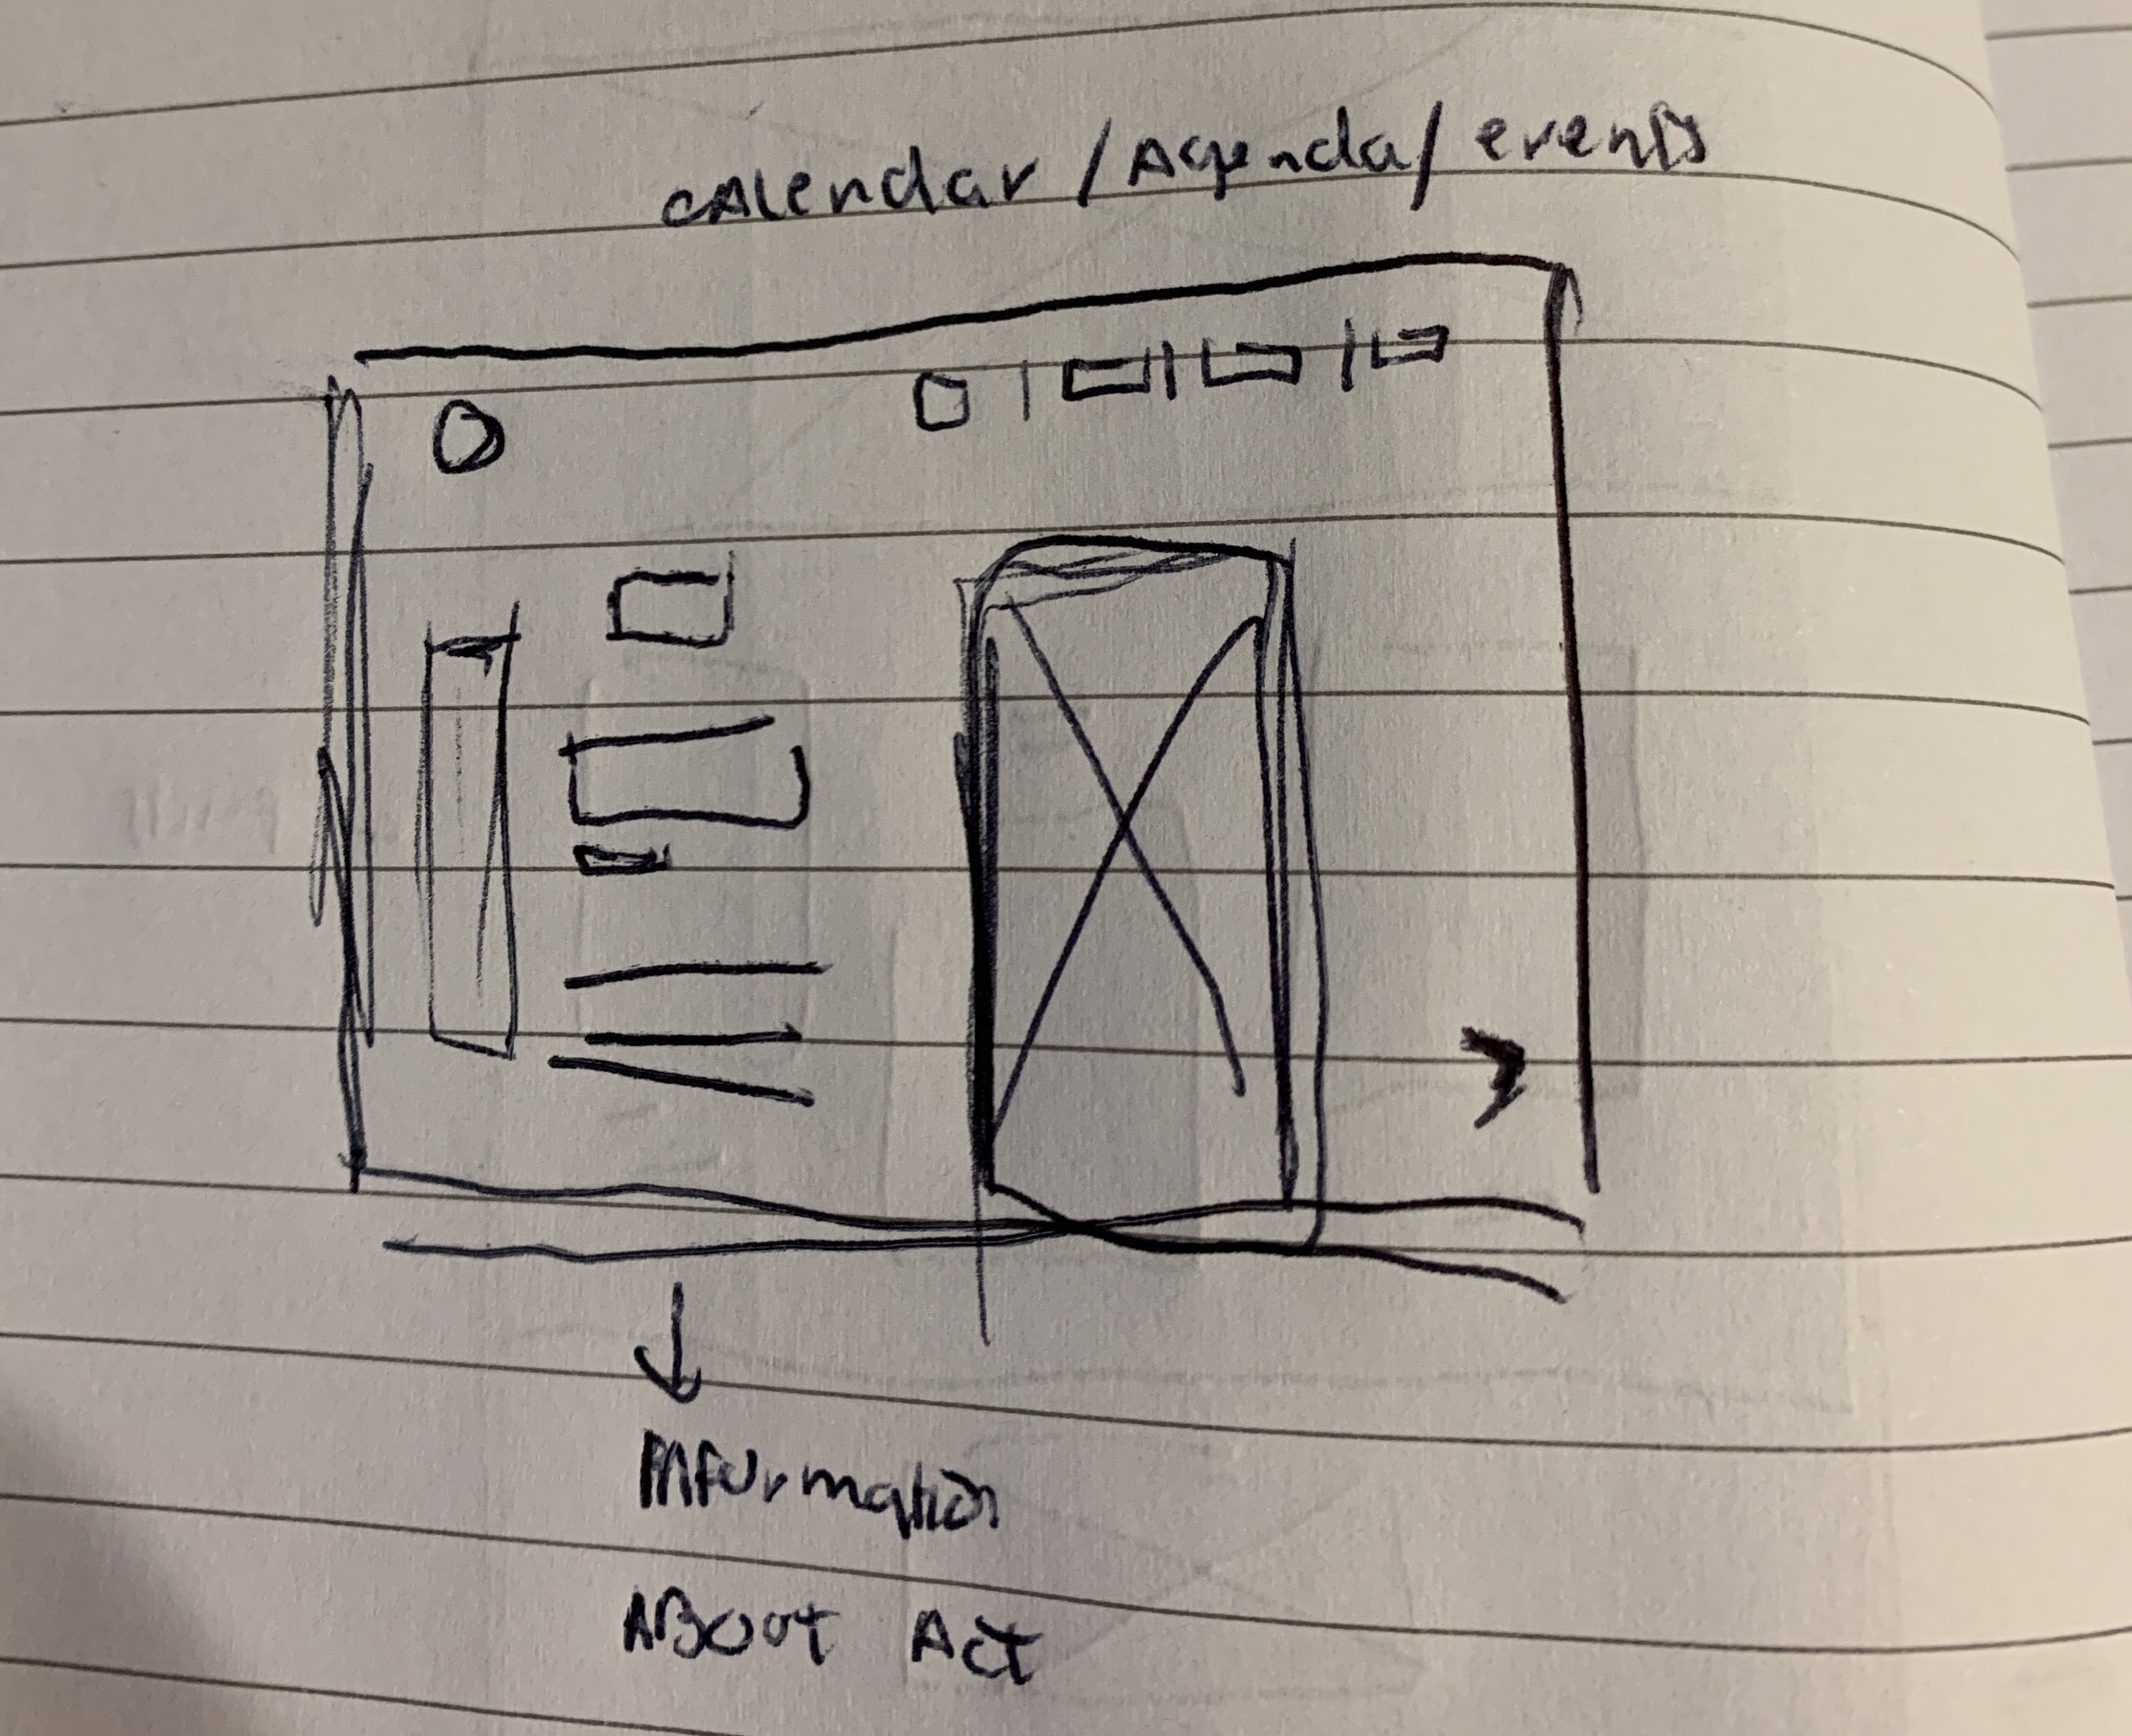 cALendar / Agenda / events
Information
ABout Act